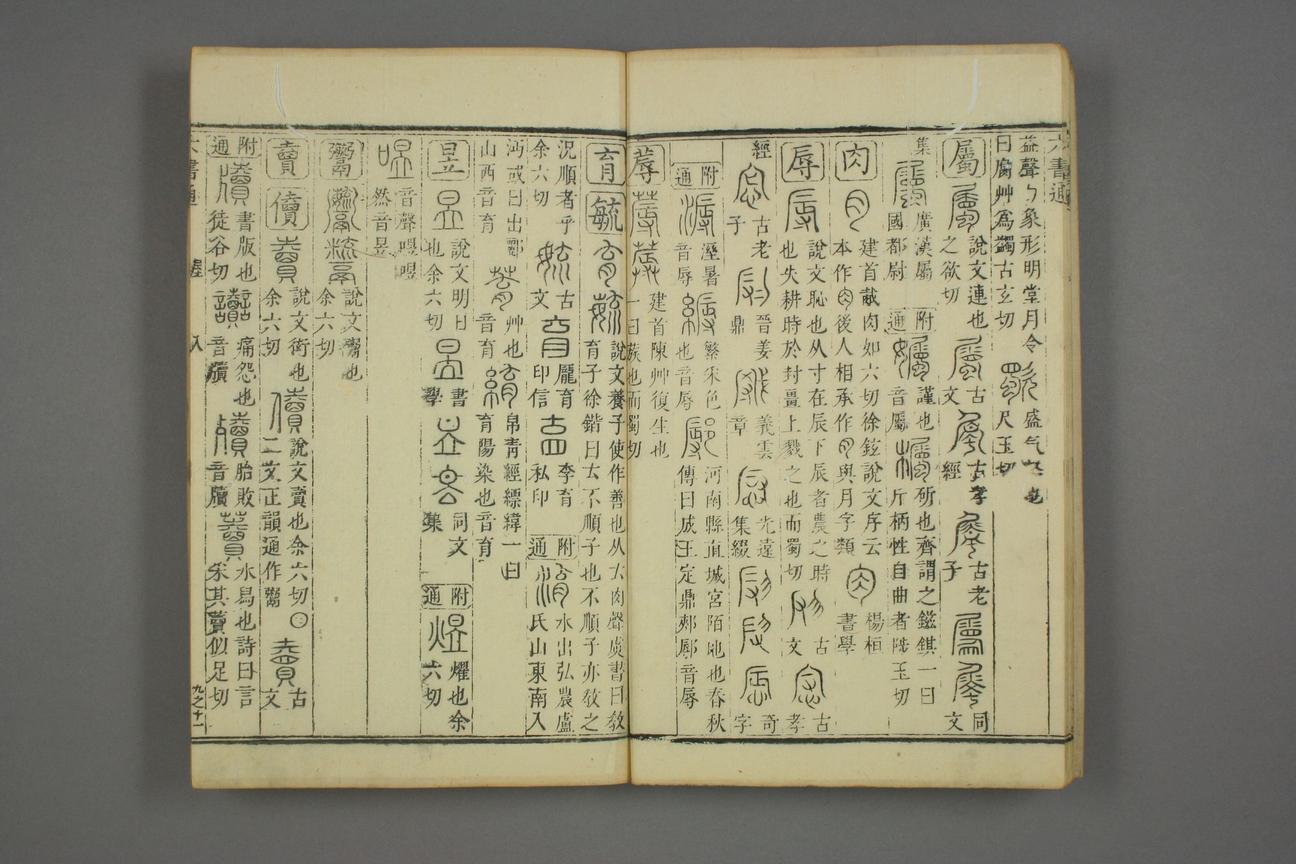 六書通
益聲勹象形明堂月令
曰腐艸為蠲古玄切 歜 盛气怒也 尺玉切
屬 說文連也之欲切 古文 古孝經 古老子 同文
集 廣漢屬國都尉 附通 孎 謹也音屬 欘 斫也齊謂之鎡錤一曰斤柄性自曲者陟玉切
肉 建首胾肉如六切徐鉉說文序云本作肉後人相承作月與月字類 楊桓書學
辱 說文恥也从寸在辰下辰者農之時也失耕時於封畺上戮之也而蜀切 古文 古孝
經 古老子 晉姜鼎 義雲章 光遠集綴 奇字
附通 溽 溼暑音辱 縟 繁采色也音辱 鄏 河南縣直城宮陌地也春秋傳曰成王定鼎郟鄏音辱
蓐 建首陳艸復生也一曰蔟也而蜀切
育 毓 說文養子使作善也从𠫓肉聲虞書曰教育子徐鍇曰𠫓不順子也不順子亦教之
況順者乎余六切 古文 龐育印信 李育私印 附通 淯 水出弘農盧氏山東南入
沔或曰出酈山西音育 艸也音育 帛青經縹緯一曰育陽染也音育
昱 說文明日也余六切 書學 同文集 附通 煜 燿也余六切
喅 音聲喅喅然音昱
鬻 說文鬻也余六切
賣 儥 說文衒也余六切 儥 說文賣也余六切 二文正韻通作鬻 古文
附通 牘 書版也徒谷切 讟 痛怨也音牘 殰 胎敗音牘 藚 水舄也詩曰言采其藚似足切
六書通 入 九之十一